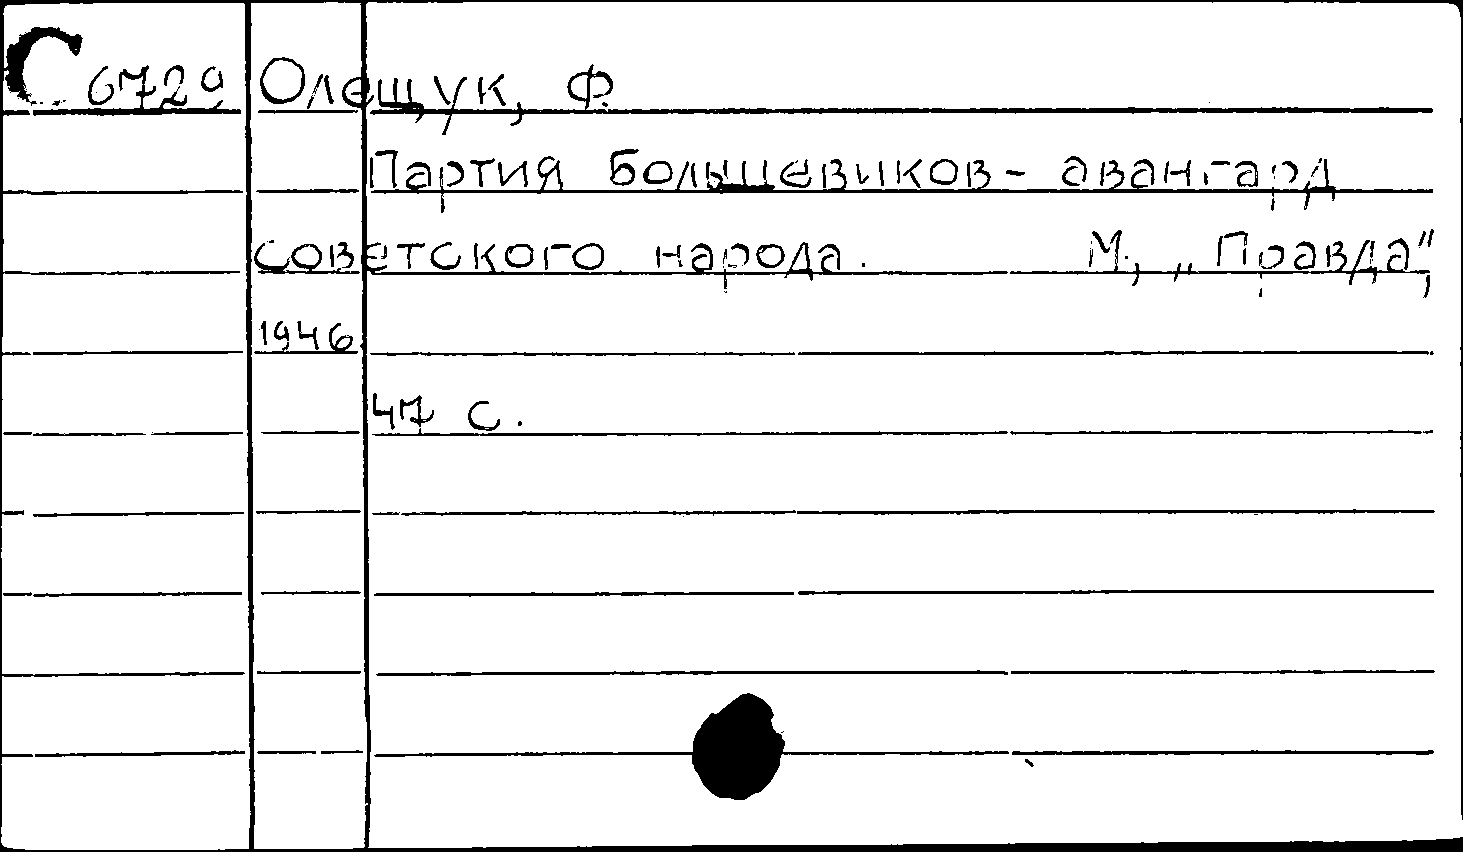 С 6729 Олещук, Ф.
Партия большевиков - авангард
советского народа. М., „Правда",
1946.
47 с.